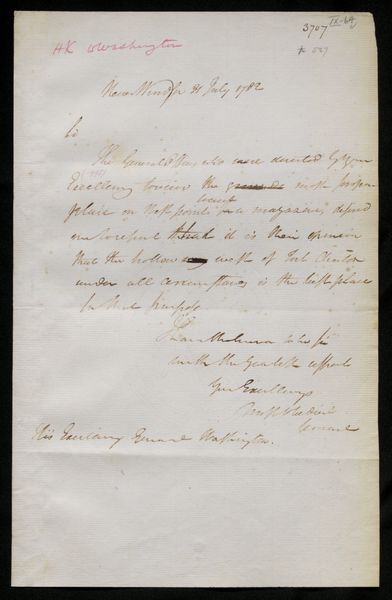 3707 IX-64
HK to Washington
New Windsor 31 July 1782
Sir
The General Officers who were directed by your
Excellency to view the grounds most proper
place on West point to erect a magazine, depend
on to report that it is their opinion
that the hollow way west of Fort Clinton
under all circumstances is the best place
for that purpose
I have the honor to be sir
with the greatest respect
Your Excellencys
most obedient
servant
His Excellency General Washington.